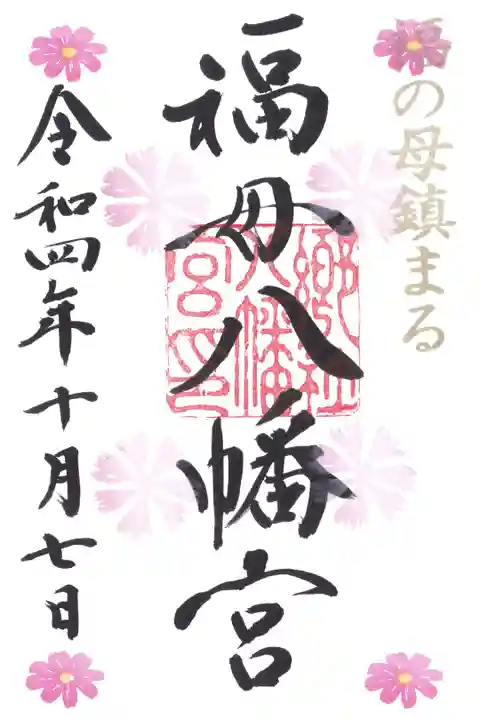 の母鎮まる
福母八幡宮
郷社
八幡
宮印
令和四年十月七日